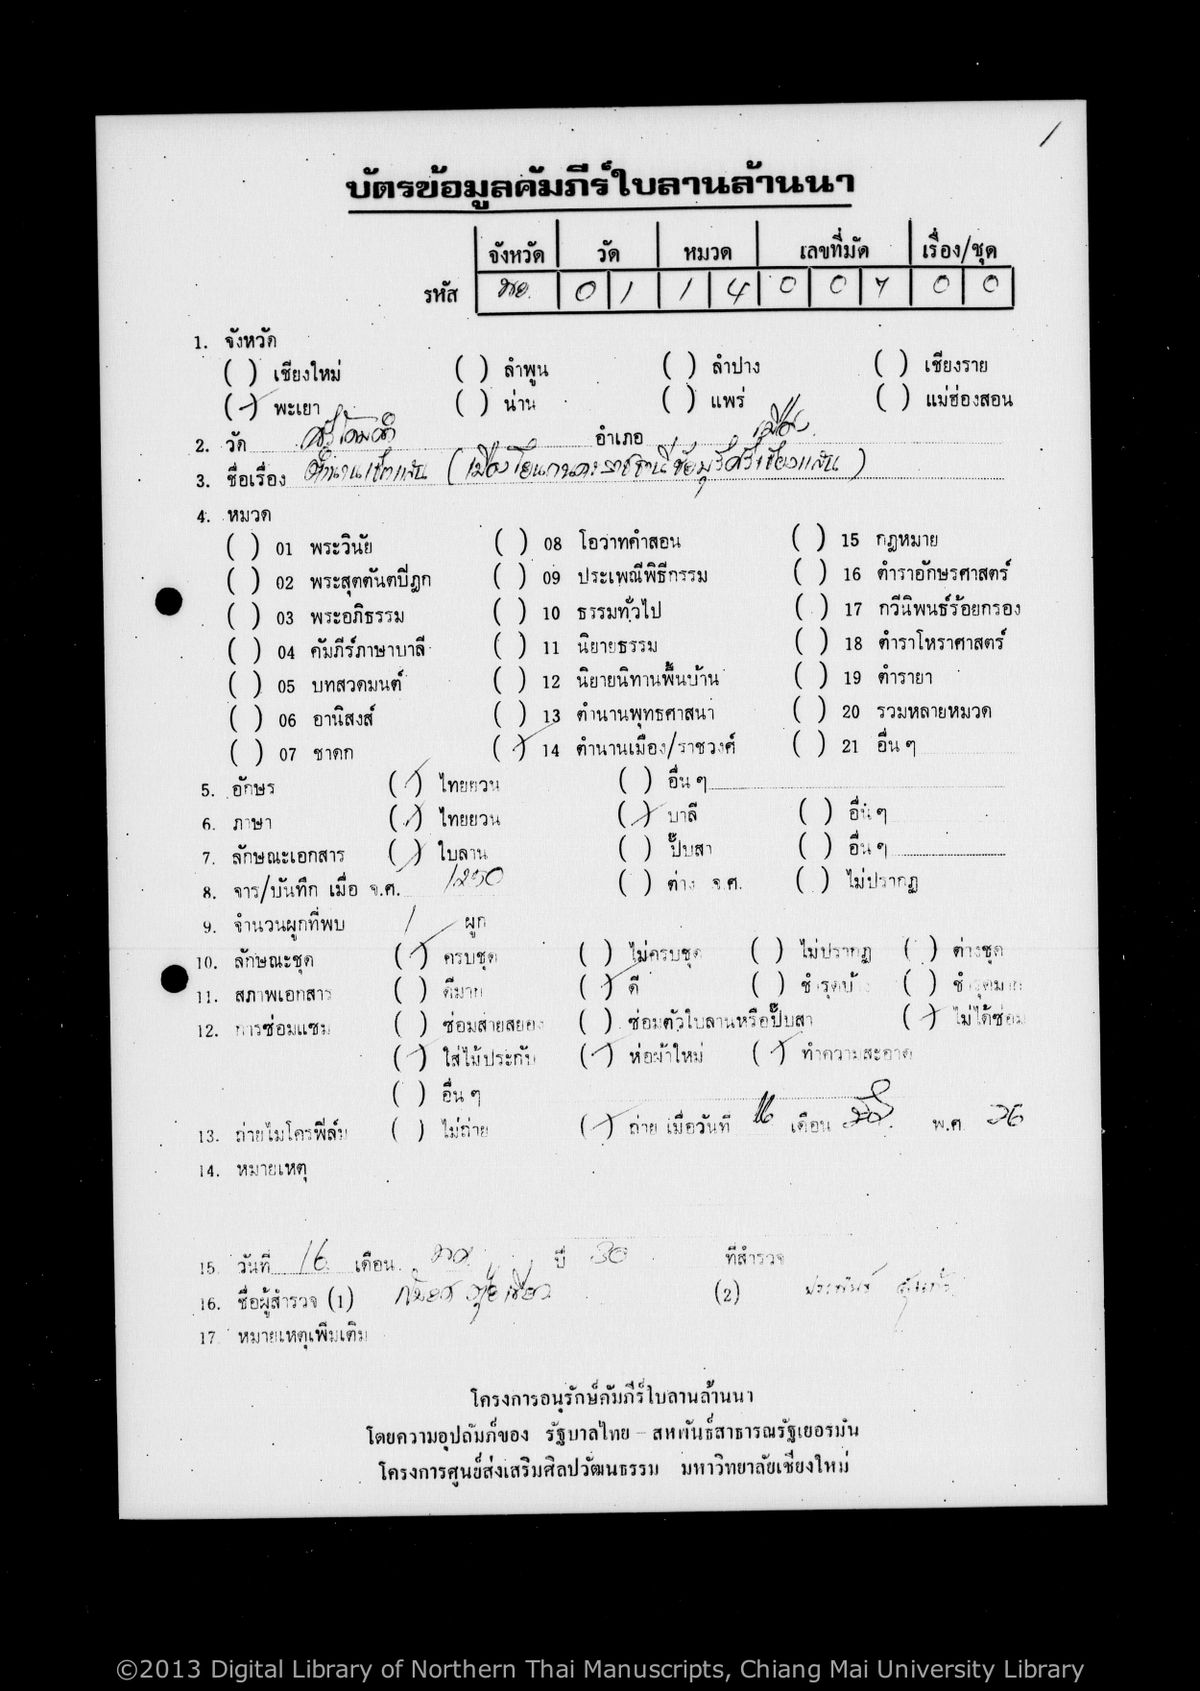 /
บัตรข้อมูลคัมภีร์ใบลานล้านนา
จังหวัด วัด หมวด เลขที่มัด เรื่อง/ชุด
รหัส พย. 0 1 1 4 0 0 7 0 0
1. จังหวัด
( ) เชียงใหม่ ( ) ลำพูน ( ) ลำปาง ( ) เชียงราย
(✓) พะเยา ( ) น่าน ( ) แพร่ ( ) แม่ฮ่องสอน
2. วัด ศรีโคมคำ อำเภอ เมือง
3. ชื่อเรื่อง ตำนานเชียงแสน
4. หมวด
( ) 01 พระวินัย ( ) 08 โอวาทคำสอน ( ) 15 กฎหมาย
( ) 02 พระสุตตันตปิฎก ( ) 09 ประเพณีพิธีกรรม ( ) 16 ตำราอักษรศาสตร์
( ) 03 พระอภิธรรม ( ) 10 ธรรมทั่วไป ( ) 17 กวีนิพนธ์ร้อยกรอง
( ) 04 คัมภีร์ภาษาบาลี ( ) 11 นิยายธรรม ( ) 18 ตำราโหราศาสตร์
( ) 05 บทสวดมนต์ ( ) 12 นิยายนิทานพื้นบ้าน ( ) 19 ตำรายา
( ) 06 อานิสงส์ ( ) 13 ตำนานพุทธศาสนา ( ) 20 รวมหลายหมวด
( ) 07 ชาดก (✓) 14 ตำนานเมือง/ราชวงศ์ ( ) 21 อื่น ๆ
5. อักษร (✓) ไทยยวน ( ) อื่น ๆ
6. ภาษา (✓) ไทยยวน (✓) บาลี ( ) อื่น ๆ
7. ลักษณะเอกสาร (✓) ใบลาน ( ) ปั๊บสา ( ) อื่น ๆ
8. จาร/บันทึก เมื่อ จ.ศ. 1250 ( ) ต่าง จ.ศ. ( ) ไม่ปรากฏ
9. จำนวนผูกที่พบ 1 ผูก
10. ลักษณะชุด (✓) ครบชุด ( ) ไม่ครบชุด ( ) ไม่ปรากฏ ( ) ต่างชุด
11. สภาพเอกสาร ( ) ดีมาก (✓) ดี ( ) ชำรุดบ้าง ( ) ชำรุดมาก
12. การซ่อมแซม ( ) ซ่อมสายสยอง ( ) ซ่อมตัวใบลานหรือปั๊บสา (✓) ไม่ได้ซ่อม
(✓) ใส่ไม้ประกับ (✓) ห่อผ้าใหม่ (✓) ทำความสะอาด
( ) อื่น ๆ
13. ถ่ายไมโครฟิล์ม ( ) ไม่ถ่าย (✓) ถ่าย เมื่อวันที่ 16 เดือน พ.ศ.
14. หมายเหตุ
15. วันที่ 16 เดือน พย. ปี 30 ที่สำรวจ
16. ชื่อผู้สำรวจ (1) (2)
17. หมายเหตุเพิ่มเติม
โครงการอนุรักษ์คัมภีร์ใบลานล้านนา
โดยความอุปถัมภ์ของ รัฐบาลไทย - สหพันธ์สาธารณรัฐเยอรมัน
โครงการศูนย์ส่งเสริมศิลปวัฒนธรรม มหาวิทยาลัยเชียงใหม่
©2013 Digital Library of Northern Thai Manuscripts, Chiang Mai University Library